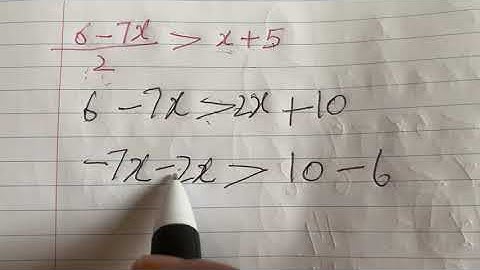 6 - 7x / 2 > x + 5
6 - 7x > 2x + 10
-7x - 2x > 10 - 6